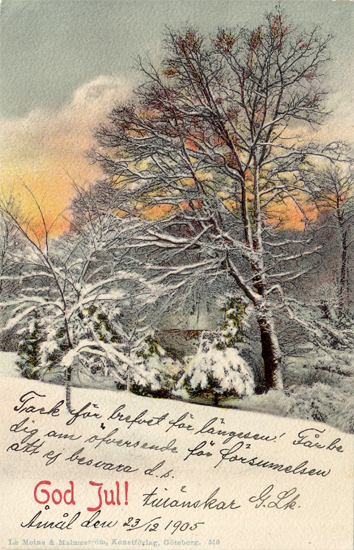 Tack för brefvet för längesen! Får be
dig om öfverseende för försumelsen
att ej besvara d.s.
God Jul! tillönskar G. Lk.
Åmål den 23/12 1905
Le Moine & Malmeström, Konstförlag, Göteborg. 510